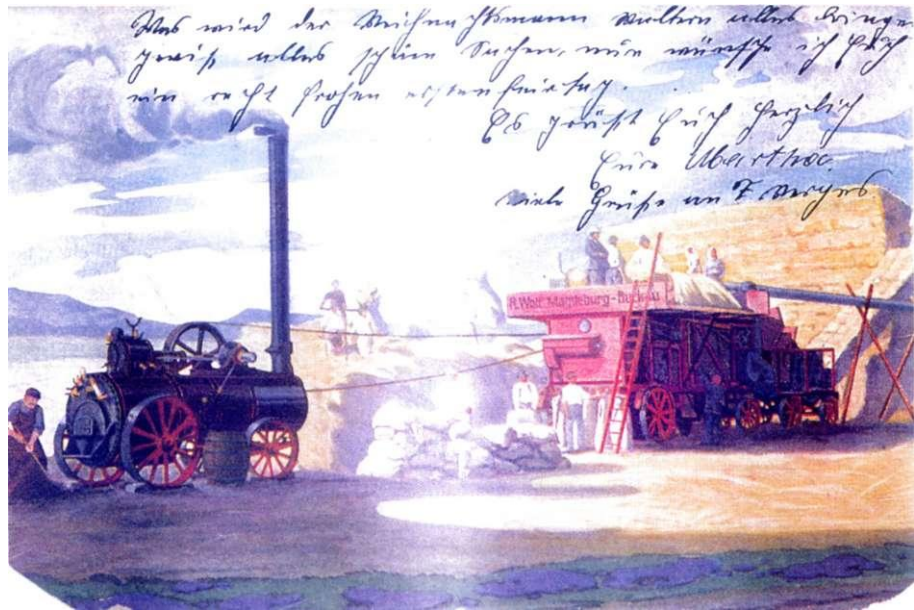 Was wird der Weihnachtsmann Waltern alles bringen
gewiß alles schöne Sachen, nun wünsche ich Euch
ein recht frohen ersten Feiertag.
Es grüßt Euch herzlich
Eure Martha.
Viele Grüße an
R. Wolf Magdeburg-Buckau